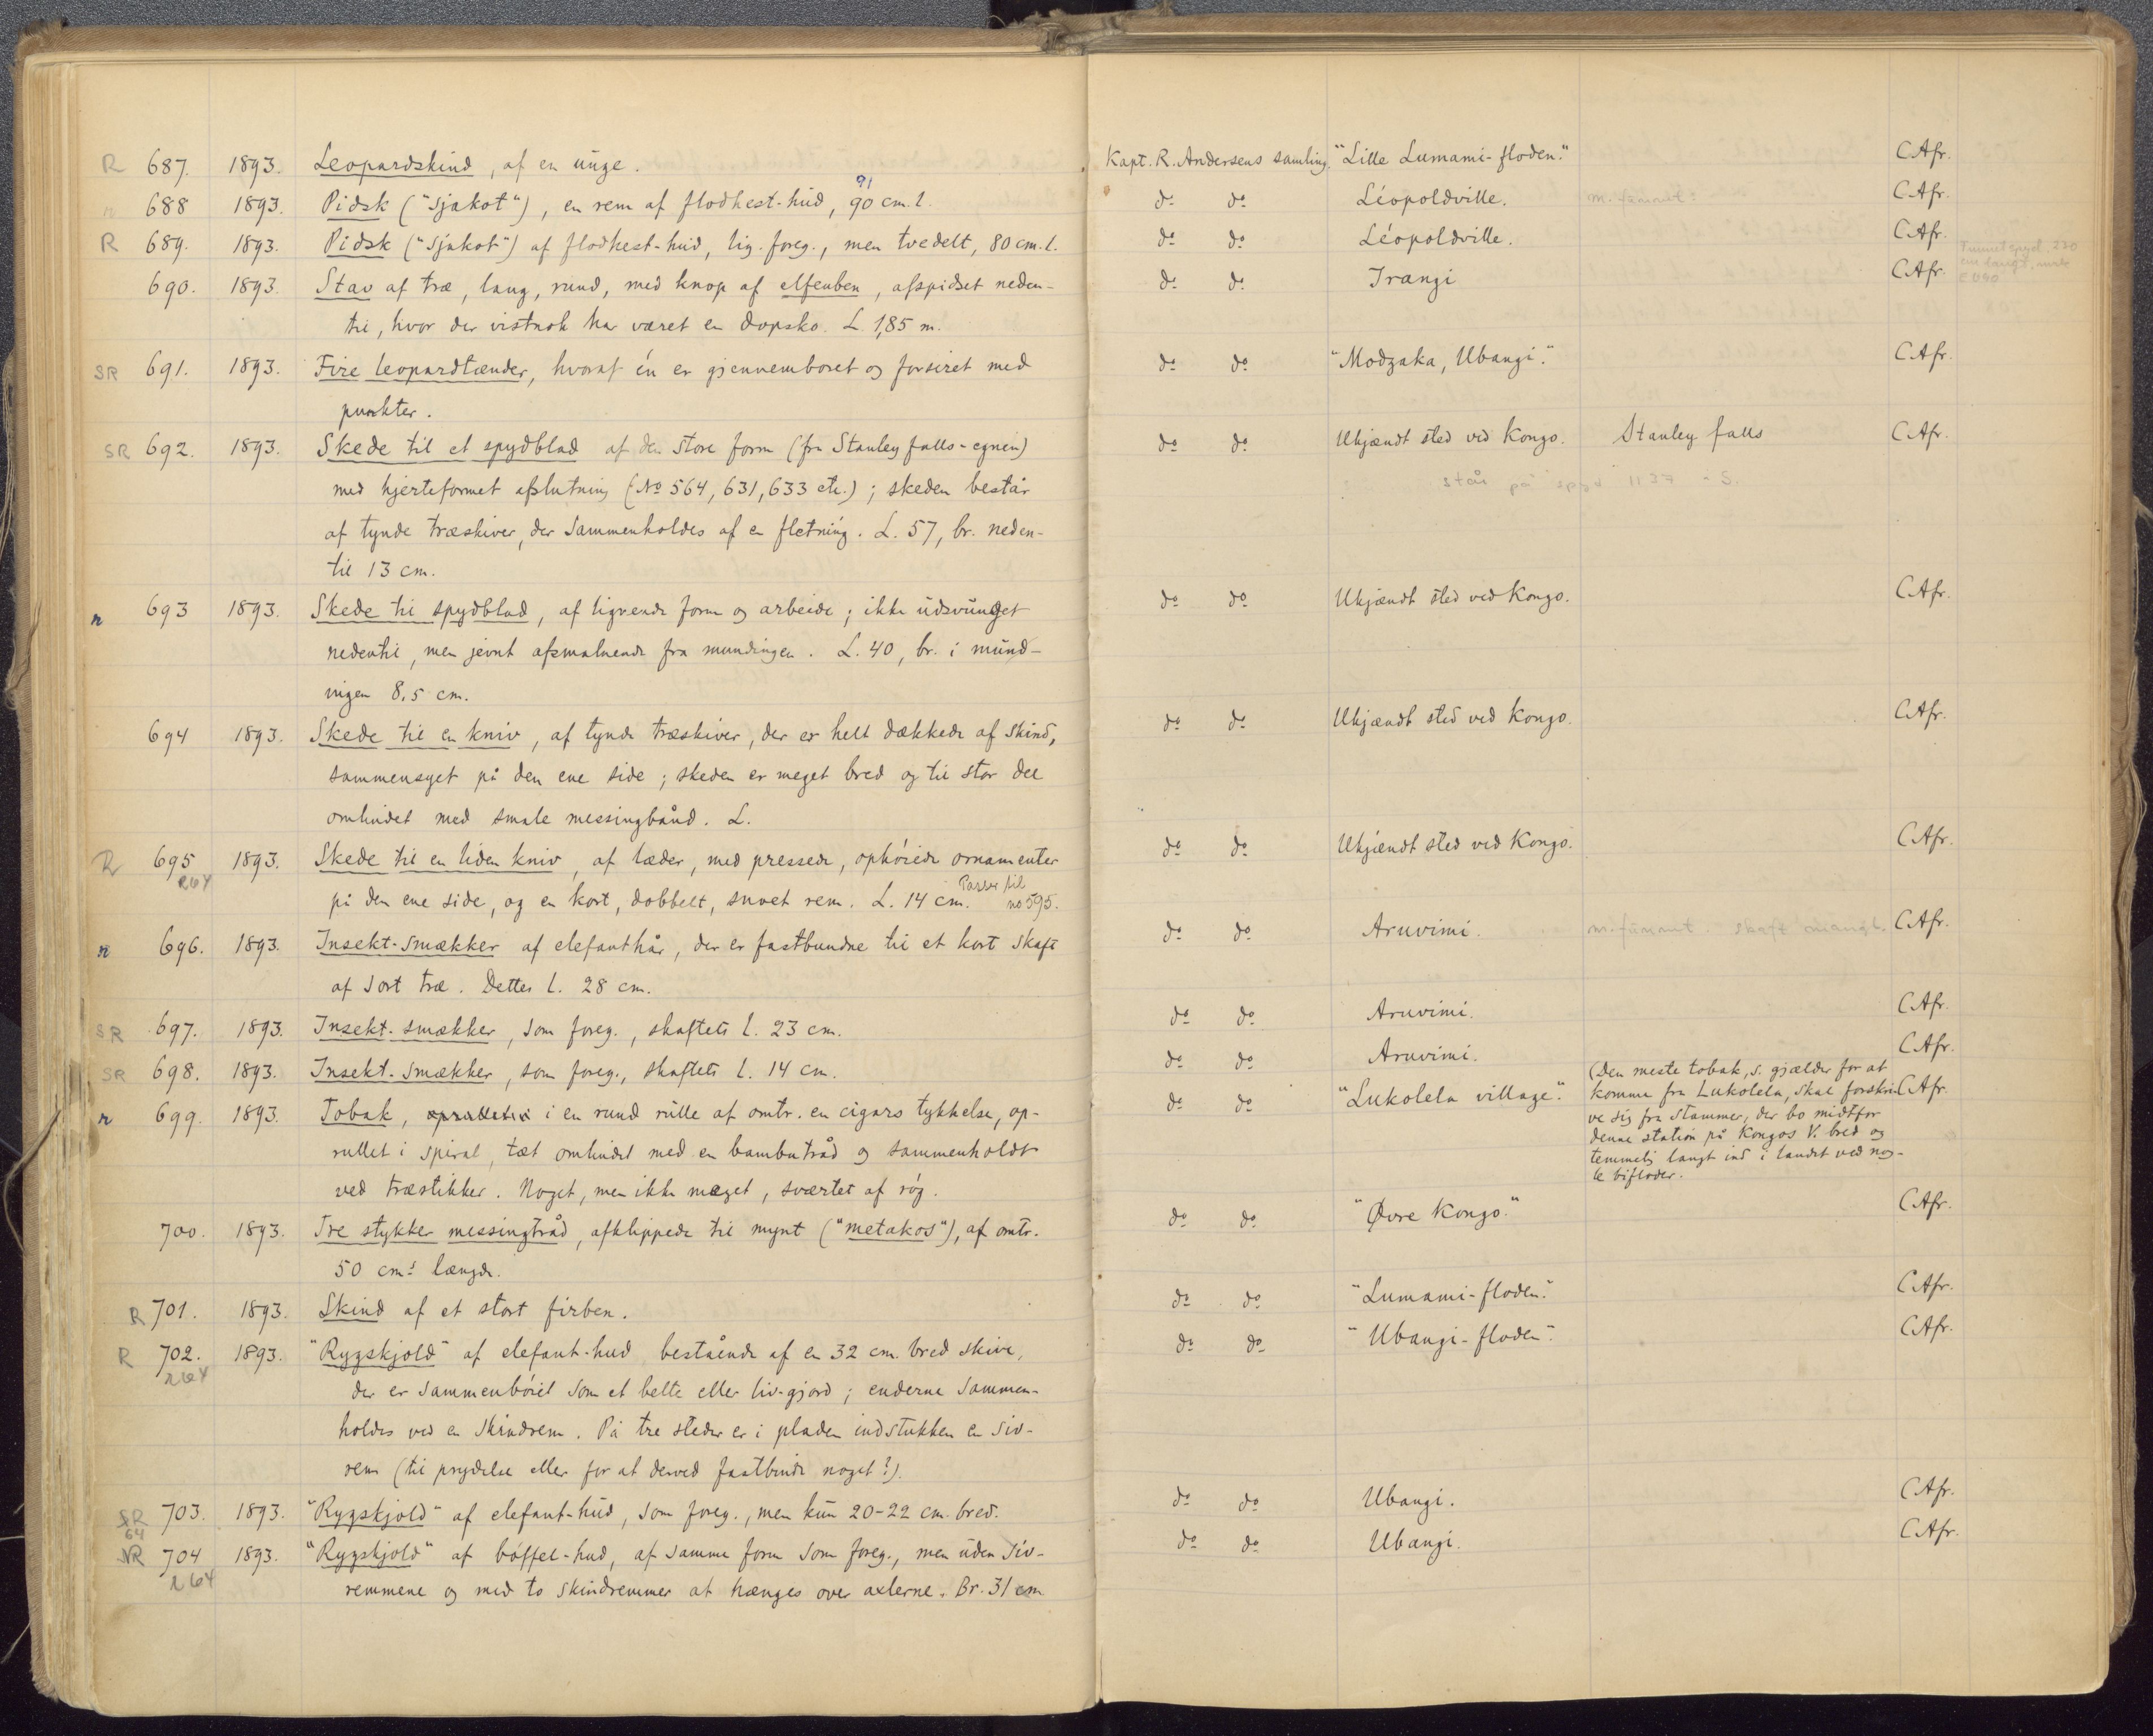 R 687. 1893. Leopardskind, af en unge. Kapt. R. Andersens samling. "Lille Lumami-floden." C Afr.
91
n 688 1893. Pidsk ("sjakot"), en rem af flodhest-hud, 90 cm. l. do do Léopoldville. C Afr.
R 689. 1893. Pidsk ("sjakot") af flodhest-hud, lig. foreg., men tvedelt, 80 cm. l. do do Léopoldville. C Afr.
690. 1893. Stav af træ, lang, rund, med knop af elfenben, afspidset neden- do do Irangi C Afr.
til, hvor der vistnok har været en dopsko. L 1,85 m.
SR 691. 1893. Fire leopardtænder, hvoraf én er gjennemboret og forsiret med do do "Modzaka, Ubangi." C Afr.
punkter.
SR 692. 1893. Skede til et spydblad af den store form (fra Stanley falls-egnen) do do Ukjændt sted ved Kongo. Stanley falls C Afr.
med hjerteformet afslutning (No 564, 631, 633 etc.); skeden består står på spyd 1137 - S.
af tynde træskiver, der sammenholdes af en fletning. L. 57, br. neden-
til 13 cm.
n 693 1893. Skede til spydblad, af lignende form og arbeide; ikke udsvunget do do Ukjændt sted ved Kongo. C Afr.
nedentil, men jevnt afsmalnende fra mundingen. L. 40, br. i mund-
ingen 8,5 cm.
694 1893. Skede til en kniv, af tynde træskiver, der er helt dækkede af skind, do do Ukjændt sted ved Kongo. C Afr.
sammensyet på den ene side; skeden er meget bred og til stor del
omvindet med smale messingbånd. L.
R 695 1893. Skede til en liden kniv, af læder, med pressede, ophöiede ornamenter do do Ukjændt sted ved Kongo. C Afr.
R64 på den ene side, og en kort, dobbelt, snoet rem. L. 14 cm. Passer til no 595.
n 696. 1893. Insekt-smækker af elefanthår, der er fastbundne til et kort skaft do do Aruvimi. skaft mangl. C Afr.
af sort træ. Dettes l. 28 cm.
SR 697. 1893. Insekt-smækker, som foreg., skaftets l. 23 cm. do do Aruvimi. C Afr.
SR 698. 1893. Insekt-smækker, som foreg., skaftets l. 14 cm. do do Aruvimi. C Afr.
n 699. 1893. Tobak, i en rund rulle af omtr. en cigars tykkelse, op- do do "Lukolela village".
rullet i spiral, tæt omvindet med en bambutråd og sammenholdt
ved træstikker. Noget, men ikke meget, sværtet af røg.
(Den meste tobak, s. gjælder for at
komme fra Lukolela, skal forskri- C Afr.
ve sig fra stammer, der bo midtfor
denne station på Kongos V. bred og
temmelig langt ind i landet ved nog-
le bifloder.
700. 1893. Tre stykker messingtråd, afklippede til mynt ("metakos"), af omtr. do do "Øvre Kongo." C Afr.
50 cms længde.
R 701. 1893. Skind af et stort firben. do do "Lumami-floden". C Afr.
R 702. 1893. "Rygskjold" af elefant-hud bestående af en 32 cm. bred skive, do do "Ubangi-floden". C Afr.
R64 der er sammenböiet som et belte eller liv-gjord; enderne sammen-
holdes ved en skindrem. På tre steder er i pladen indstukken en siv-
rem (til prydelse eller for at derved fastbinde noget?).
SR 703. 1893. "Rygskjold" af elefant-hud, som foreg., men kun 20-22 cm. bred. do do Ubangi. C Afr.
64
NR 704 1893. "Rygskjold" af böffel-hud, af samme form som foreg., men uden siv- do do Ubangi. C Afr.
R64 remmene og med to skindremmer at hænges over axlerne. Br. 31 cm